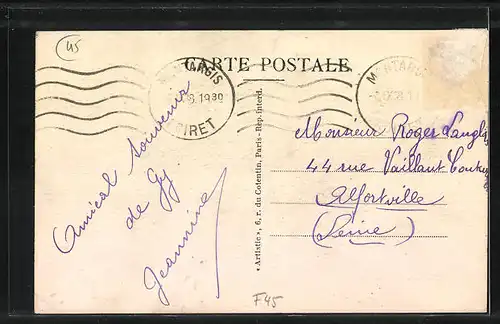 45
CARTE POSTALE
MONTARGIS
1939
LOIRET
MONTARGIS
Amical Souvenir
de Gy
Jeannine
« Artistic », 6, r. du Cotentin, Paris - Rep. interd.
Monsieur Roger Langlois
44 rue Vaillant Coutur
Alfortville
(Seine)
F45